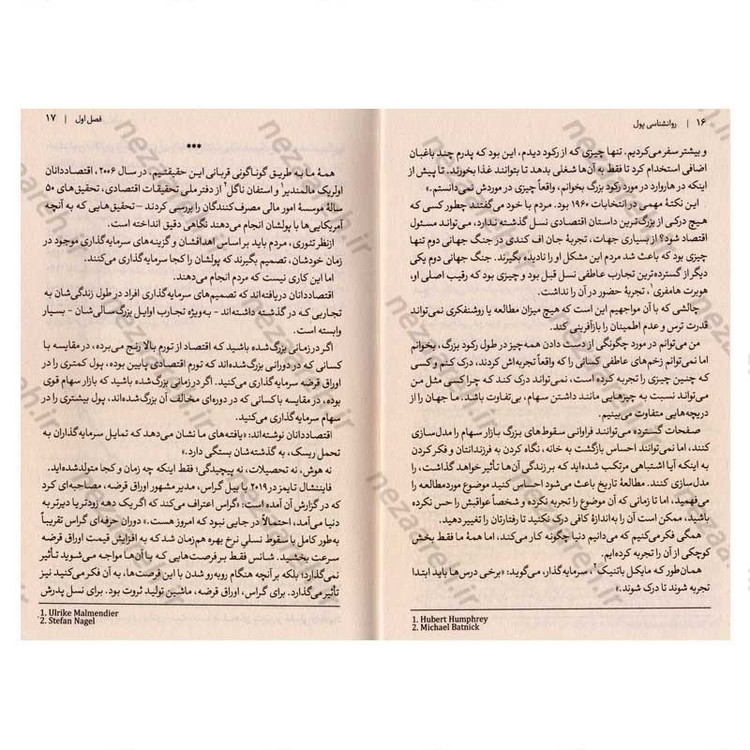 ۱۶ | روانشناسی پول
و بیشتر سفر می‌کردیم. تنها چیزی که از رکود دیدم، این بود که پدرم چند باغبان
اضافی استخدام کرد تا فقط به آن‌ها شغلی بدهد تا بتوانند غذا بخورند. تا پیش از
اینکه در هاروارد در مورد رکود بزرگ بخوانم، واقعاً چیزی در موردش نمی‌دانستم.»
این نکتهٔ مهمی در انتخابات ۱۹۶۰ بود. مردم با خود می‌گفتند چطور کسی که
هیچ درکی از بزرگ‌ترین داستان اقتصادی نسل گذشته ندارد، می‌تواند مسئول
اقتصاد شود؟ از بسیاری جهات، تجربهٔ جان اف کندی در جنگ جهانی دوم تنها
چیزی بود که باعث شد مردم این مشکل او را نادیده بگیرند. جنگ جهانی دوم یکی
دیگر از گسترده‌ترین تجارب عاطفی نسل قبل بود و چیزی بود که رقیب اصلی او،
هوبرت هامفری۱، تجربهٔ حضور در آن را نداشت.
چالشی که با آن مواجهیم این است که هیچ میزان مطالعه یا روشنفکری نمی‌تواند
قدرت ترس و عدم اطمینان را بازآفرینی کند.
من می‌توانم در مورد چگونگی از دست دادن همه‌چیز در طول رکود بزرگ، بخوانم
اما نمی‌توانم زخم‌های عاطفی کسانی را که واقعاً تجربه‌اش کردند، درک کنم و کسی
که چنین چیزی را تجربه کرده است، نمی‌تواند درک کند که چرا کسی مثل من
می‌تواند نسبت به چیزهایی مانند داشتن سهام، بی‌تفاوت باشد. ما جهان را از
دریچه‌هایی متفاوت می‌بینیم.
صفحات گسترده می‌توانند فراوانی سقوط‌های بزرگ بازار سهام را مدل‌سازی
کنند، اما نمی‌توانند احساس بازگشت به خانه، نگاه کردن به فرزندانتان و فکر کردن
به اینکه آیا اشتباهی مرتکب شده‌اید که بر زندگی آن‌ها تأثیر خواهد گذاشت، را
مدل‌سازی کنند. مطالعهٔ تاریخ باعث می‌شود احساس کنید موضوع موردمطالعه را
می‌فهمید، اما تا زمانی که آن موضوع را تجربه نکرده و شخصاً عواقبش را حس نکرده
باشید، ممکن است آن را به‌اندازهٔ کافی درک نکنید تا رفتارتان را تغییر دهید.
همگی فکر می‌کنیم که می‌دانیم دنیا چگونه کار می‌کند، اما همهٔ ما فقط بخش
کوچکی از آن را تجربه کرده‌ایم.
همان‌طور که مایکل باتنیک۲، سرمایه‌گذار، می‌گوید: «برخی درس‌ها باید ابتدا
تجربه شوند تا درک شوند.»
1. Hubert Humphrey
2. Michael Batnick
فصل اول | ۱۷
•••
همهٔ ما به طریق گوناگونی قربانی این حقیقتیم. در سال ۲۰۰۶، اقتصاددانان
اولریک مالمندیر۱ و استفان ناگل۲ از دفتر ملی تحقیقات اقتصادی، تحقیق‌های ۵۰
سالهٔ موسسهٔ امور مالی مصرف‌کنندگان را بررسی کردند – تحقیق‌هایی که به آنچه
آمریکایی‌ها با پولشان انجام می‌دهند نگاهی دقیق انداخته است.
ازنظر تئوری، مردم باید بر اساس اهدافشان و گزینه‌های سرمایه‌گذاری موجود در
زمان خودشان، تصمیم بگیرند که پولشان را کجا سرمایه‌گذاری می‌کنند.
اما این کاری نیست که مردم انجام می‌دهند.
اقتصاددانان دریافته‌اند که تصمیم‌های سرمایه‌گذاری افراد در طول زندگی‌شان به
تجاربی که در گذشته داشته‌اند – به‌ویژه تجارب اوایل بزرگ سالی‌شان – بسیار
وابسته است.
اگر در زمانی بزرگ‌شده باشید که اقتصاد از تورم بالا رنج می‌برده، در مقایسه با
کسانی که در دورانی بزرگ‌شده‌اند که تورم اقتصادی پایین بوده، پول کمتری را در
اوراق قرضه سرمایه‌گذاری می‌کنید. اگر در زمانی بزرگ‌شده باشید که بازار سهام قوی
بوده، در مقایسه با کسانی که در دوره‌ای مخالف آن بزرگ‌شده‌اند، پول بیشتری را در
سهام سرمایه‌گذاری می‌کنید.
اقتصاددانان نوشته‌اند: «یافته‌های ما نشان می‌دهد که تمایل سرمایه‌گذاران به
تحمل ریسک، به گذشته‌شان بستگی دارد.»
نه هوش، نه تحصیلات، نه پیچیدگی؛ فقط اینکه چه زمان و کجا متولدشده‌اید.
فایننشال تایمز در ۲۰۱۹ با بیل گراس، مدیر مشهور اوراق قرضه، مصاحبه‌ای کرد
که در گزارش آن آمده است: «گراس اعتراف می‌کند که اگر یک دهه زودتر یا دیرتر به
دنیا می‌آمد، احتمالاً در جایی نبود که امروز هست.» دوران حرفه‌ای گراس تقریباً
به‌طور کامل با سقوط نسلی نرخ بهره هم‌زمان شد که به افزایش قیمت اوراق قرضه
سرعت بخشید. شانس فقط بر فرصت‌هایی که با آن‌ها مواجه می‌شوید تأثیر
نمی‌گذارد؛ بلکه بر آنچه هنگام روبه‌رو شدن با این فرصت‌ها، به آن فکر می‌کنید نیز
تأثیر می‌گذارد. برای گراس، اوراق قرضه، ماشین تولید ثروت بود. برای نسل پدرش
1. Ulrike Malmendier
2. Stefan Nagel
nezareh.ir